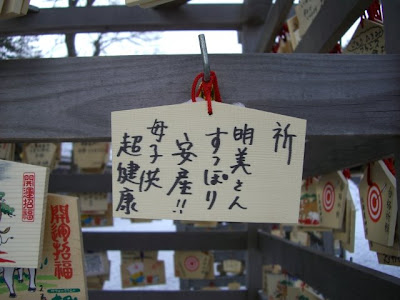 祈
明美さん
すっぽり
安産!!
母子供
超健康
開運招福
開運招福